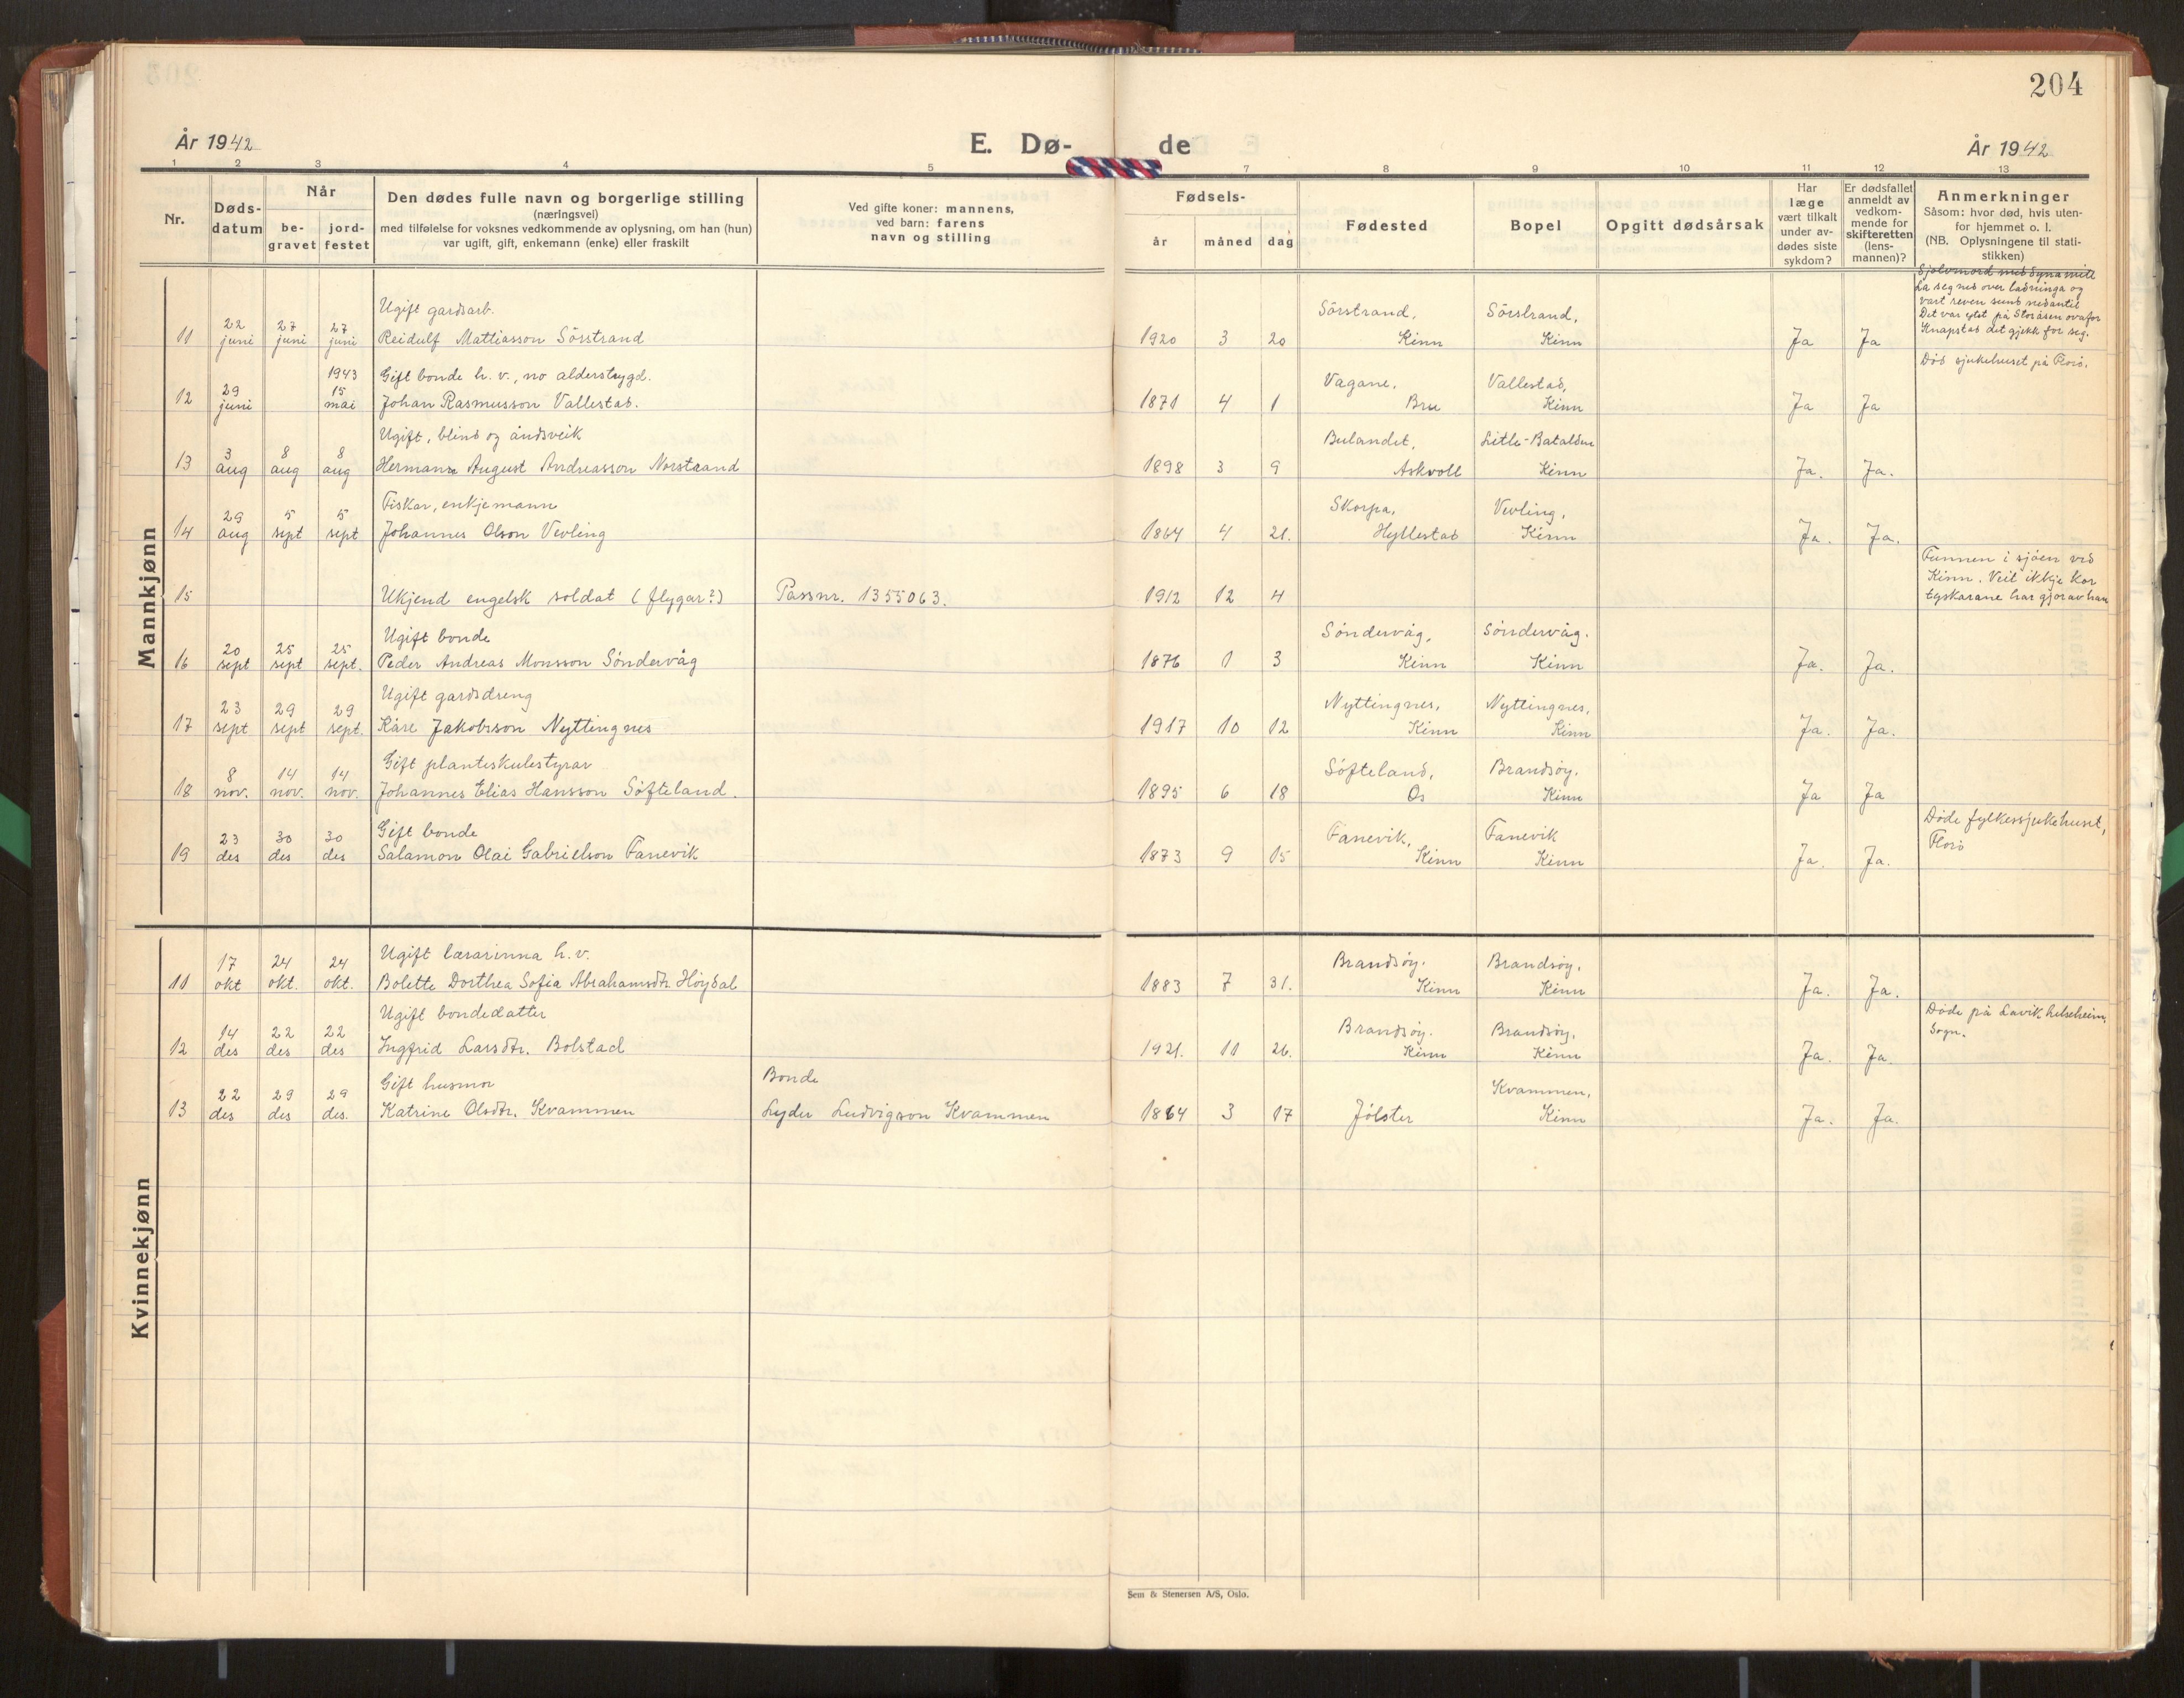 204
År 1942
E. Dø-
de
År 1942
1 2 3 4 5 7 8 9 10 11 12 13
Nr.
Døds-
datum
Når
be-
gravet
jord-
festet
Den dødes fulle navn og borgerlige stilling
(næringsvei)
med tilføielse for voksnes vedkommende av oplysning, om han (hun)
var ugift, gift, enkemann (enke) eller fraskilt
Ved gifte koner: mannens,
ved barn: farens
navn og stilling
Fødsels-
år måned dag
Fødested
Bopel
Opgitt dødsårsak
Har
læge
vært tilkalt
under av-
dødes siste
sykdom?
Er dødsfallet
anmeldt av
vedkom-
mende for
skifteretten
(lens-
mannen)?
Anmerkninger
Såsom: hvor død, hvis uten-
for hjemmet o. l.
(NB. Oplysningene til stati-
stikken)
Mannkjønn
Sjølvmord med dynamitt
La seg ned over ladninga og
vart reven sund nedantil
Det var på Storåsen ovafor
Knapstad det gjekk for seg.
Ugift gardsarb. Sörstrand, Sörstrand,
11 22 juni 27 juni 27 juni Reidulf Mattiasson Sörstrand 1920 3 20 Kinn Kinn Ja Ja
Död sjukehuset på Florö.
1943 Gift bonde h. v., no alderstrygd. Vagane, Vallestad,
12 29 juni 15 mai Johan Rasmusson Vallestad. 1871 4 1 Bru Kinn Ja Ja
Ugift, blind og åndsveik Bulandet, Litle-Batalden
13 3 aug 8 aug 8 aug Hermann August Andreasson Norstrand 1898 3 9 Askvoll Kinn Ja. Ja.
Fiskar, enkjemann Skorpa, Vevling,
14 29 aug 5 sept 5 sept Johannes Olson Vevling 1864 4 21. Hyllestad Kinn Ja. Ja.
Funnen i sjöen ved
Kinn. Veit ikkje kor
tyskarane har gjorav han
15 Ukjend engelsk soldat (flygar?) Passnr. 1355063. 1912 12 4
Ugift bonde Söndervåg, Söndervåg.
16 20 sept 25 sept 25 sept. Peder Andreas Monsson Söndervåg 1876 1 3 Kinn Kinn Ja. Ja.
Ugift gardsdreng Nyttingnes, Nyttingnes,
17 23 sept 29 sept 29 sept. Kåre Jakobsson Nyttingnes 1917 10 12 Kinn Kinn Ja. Ja.
Gift planteskulestyrar Söfteland, Brandsöy.
18 8 nov. 14 nov. 14 nov. Johannes Elias Hansson Söfteland. 1895 6 18 Os Kinn Ja Ja
Gift bonde Fanevik, Fanevik Döde fylkessjukehuset,
Florö
19 23 des 30 des 30 des Salamon Olai Gabrielson Fanevik 1873 9 15 Kinn Kinn Ja. Ja.
Kvinnekjønn
Ugift lærarinna h. v. Brandsöy. Brandsöy,
11 17 okt 24 okt. 24 okt. Bolette Dorthea Sofia Abrahamsdtr. Höydal 1883 7 31. Kinn Kinn Ja. Ja.
Ugift bondedatter Brandsöy. Brandsöy, Döde på Lavik helseheim,
Sogn.
12 14 des 22 des 22 des Ingfrid Larsdtr. Bolstad 1921. 11 26. Kinn Kinn Ja. Ja.
Gift husmor Bonde Kvammen,
13 22 des 29 des 29 des. Katrine Olsdtr. Kvammen Lyder Ludvigson Kvammen 1864 3 17 Jölster Kinn Ja. Ja.
Sem & Stenersen A/S, Oslo.